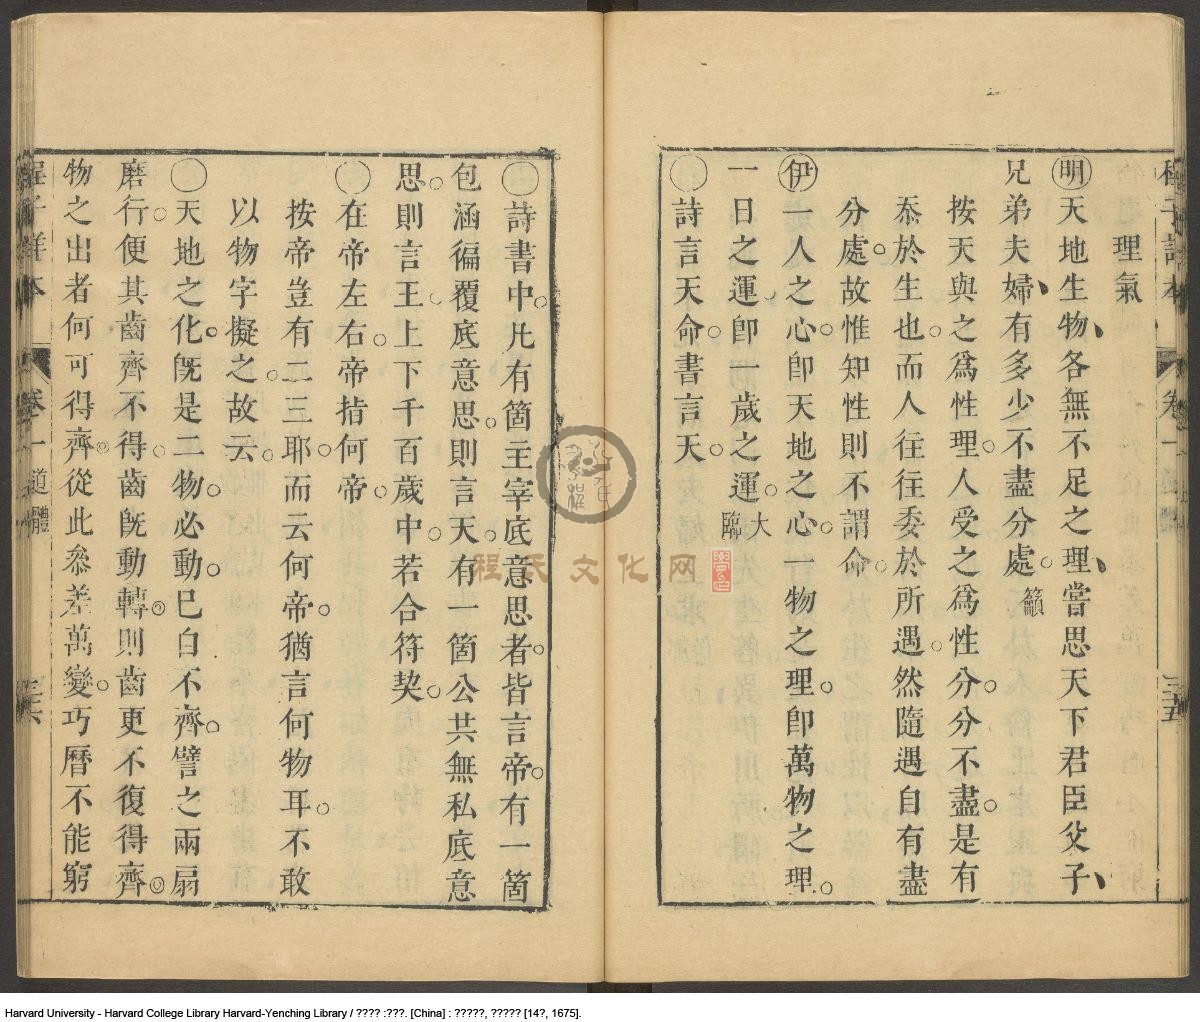 程子詳本 卷一 道體 三五
理氣
明天地生物各無不足之理嘗思天下君臣父子
兄弟夫婦有多少不盡分處籲
按天與之爲性理人受之爲性分分不盡是有
忝於生也而人往往委於所遇然隨遇自有盡
分處故惟知性則不謂命
伊一人之心卽天地之心一物之理卽萬物之理
一日之運卽一歲之運大臨
○詩言天命書言天
○詩書中凡有箇主宰底意思者皆言帝有一箇
包涵徧覆底意思則言天有一箇公共無私底意
思則言王上下千百歲中若合符契
○在帝左右帝指何帝
按帝豈有二三耶而云何帝猶言何物耳不敢
以物字擬之故云
○天地之化旣是二物必動已自不齊譬之兩扇
磨行便其齒齊不得齒旣動轉則齒更不復得齊
物之出者何可得齊從此參差萬變巧曆不能窮
程子詳本 卷一 道體 三六
程氏文化网
Harvard University - Harvard College Library Harvard-Yenching Library / ???? :???. [China] : ?????, ????? [14?, 1675].